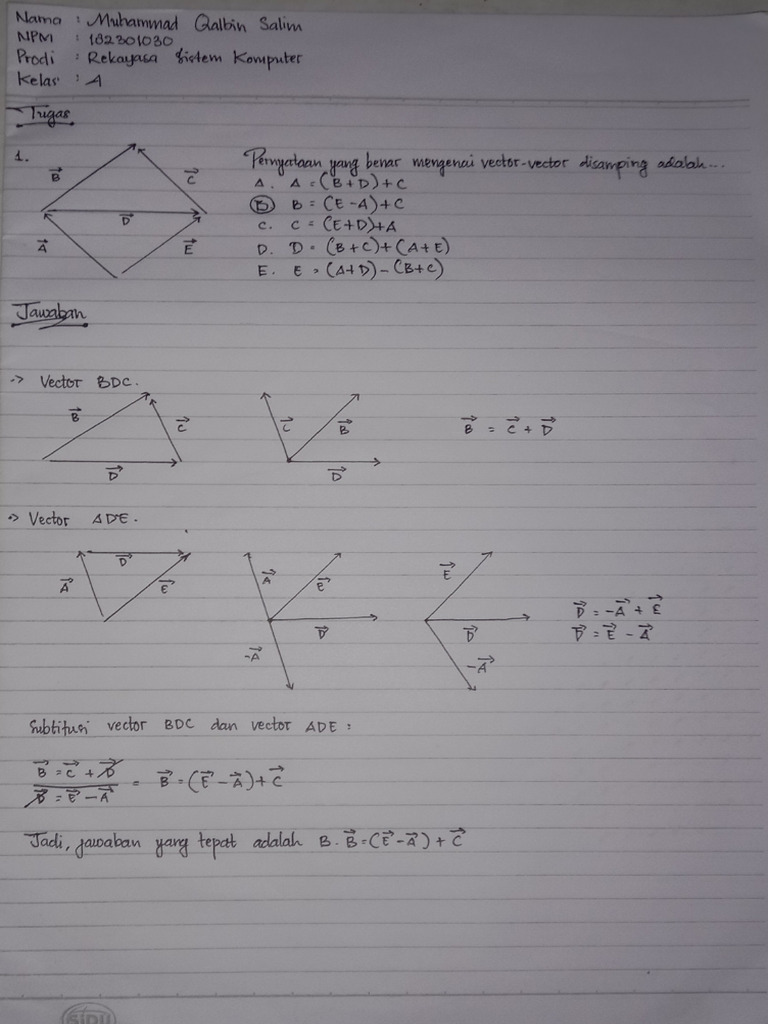 Nama : Muhammad Qalbin Salim
NPM : 182301030
Prodi : Rekayasa Sistem Komputer
Kelas : A
Tugas
1.
Pernyataan yang benar mengenai vector-vector disamping adalah...
A. A = (B+D)+C
B. B = (E-A)+C
C. C = (E+D)+A
D. D = (B+C)+(A+E)
E. E = (A+D)-(B+C)
B→ C→
D→
A→ E→
Jawaban
-> Vector BDC.
B→ C→ D→
C→ B→ D→
B→ = C→ + D→
-> Vector ADE.
D→ A→ E→
A→ E→ D→ -A→
E→ D→ -A→
D→ = -A→ + E→
D→ = E→ - A→
Subtitusi vector BDC dan vector ADE :
B→ = C→ + D→
D→ = E→ - A→
= B→ = (E→ - A→) + C→
Jadi, jawaban yang tepat adalah B. B→ = (E→ - A→) + C→
SIDU